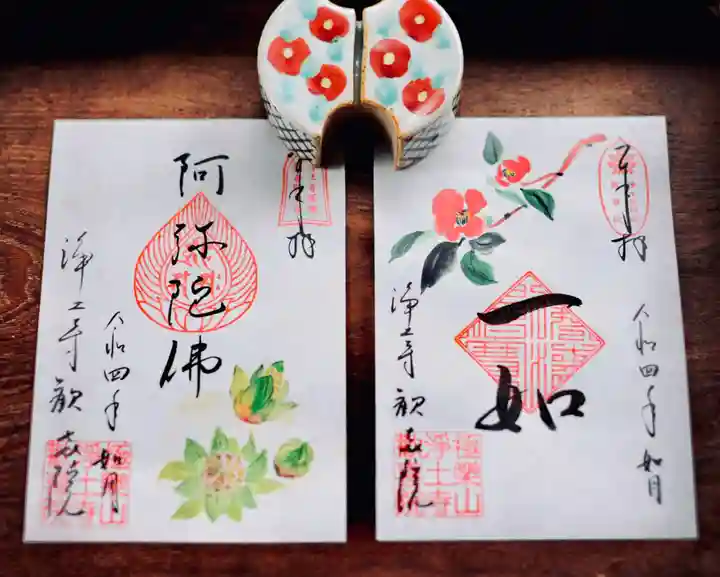 奉拝
阿弥陀佛
令和四年
如月
浄土寺歓喜院
極楽山
浄土寺
奉拝
一如
令和四年
如月
浄土寺歓喜院
極楽山
浄土寺